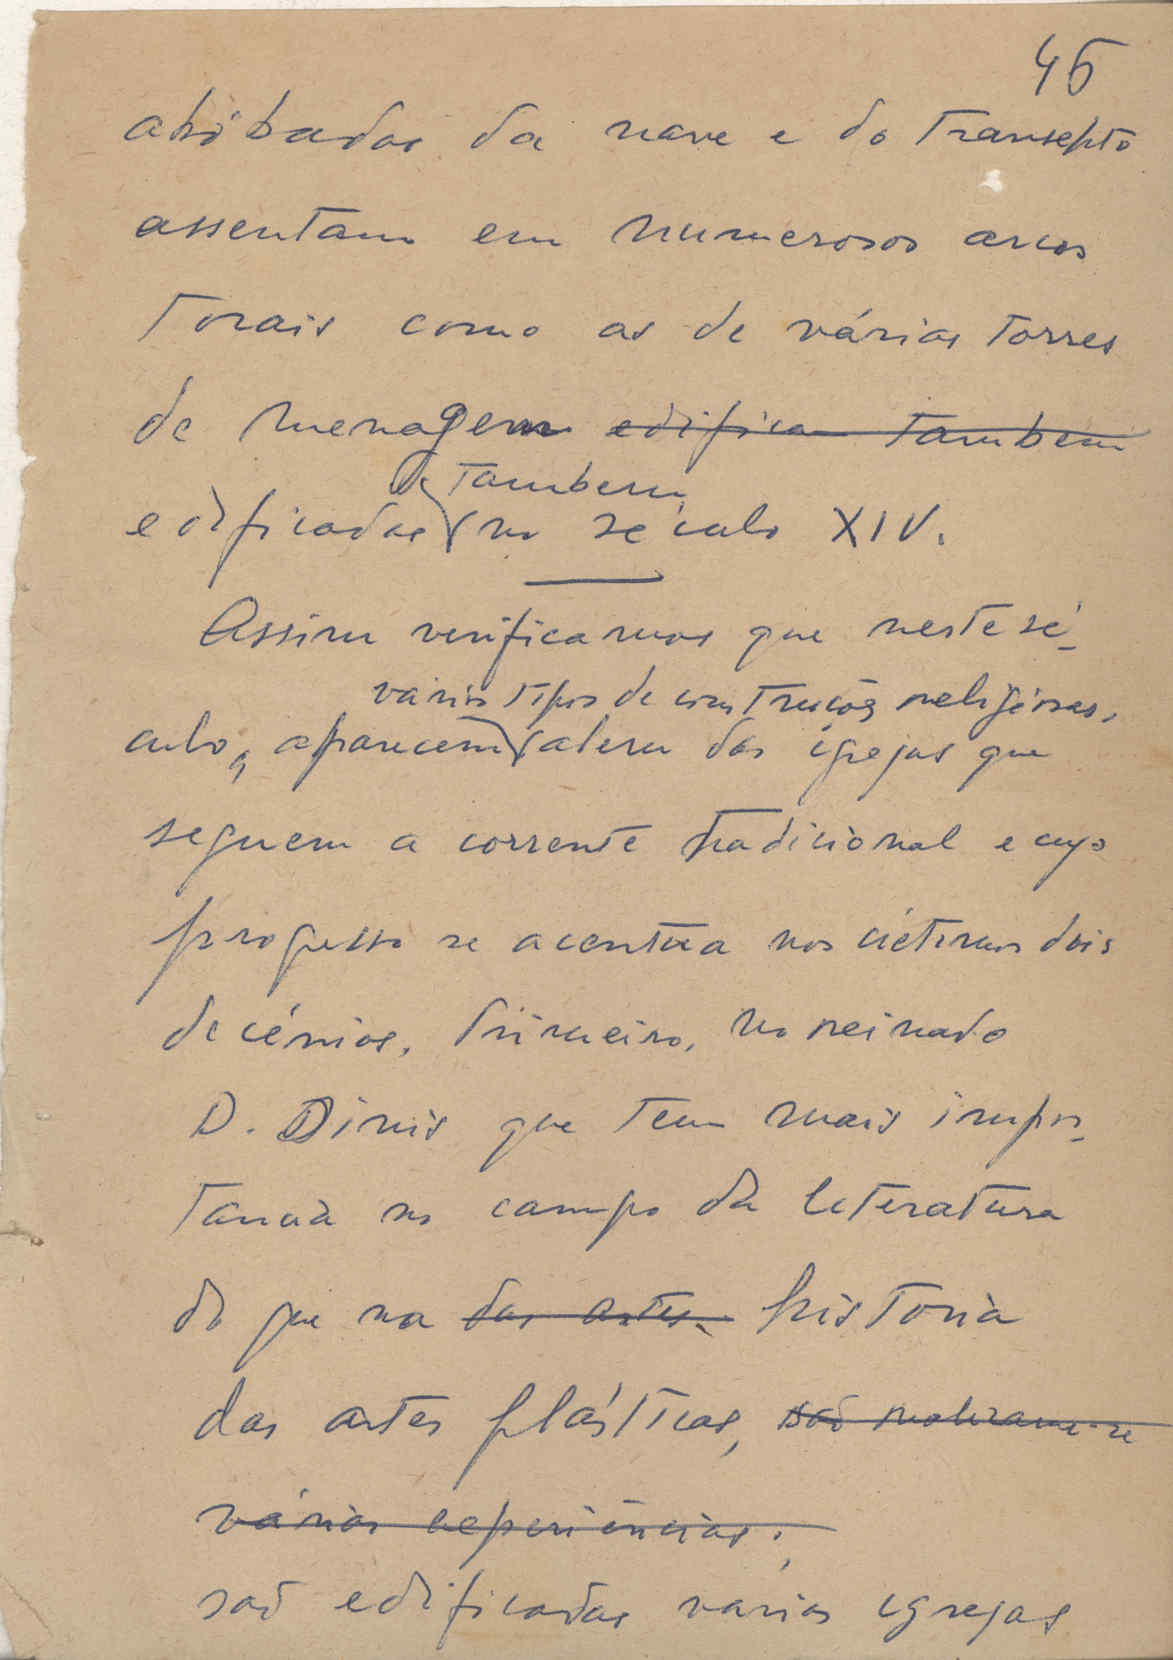 45
abóbadas da nave e do transepto
assentam em numerosos arcos
torais como as de várias torres
de menagem edifica tambem
tambem
edificadas no século XIV.
Assim verificamos que neste sé-
varios tipos de construções religiosas,
culo, aparecem alem das igrejas que
seguem a corrente tradicional e cujo
progresso se acentua nos últimos dois
decénios. Primeiro, no reinado
D. Dinis que tem mais impor-
tancia no campo da literatura
do que na das artes. historia
das artes plásticas, são realizam-se
várias experiências.
são edificadas varias igrejas